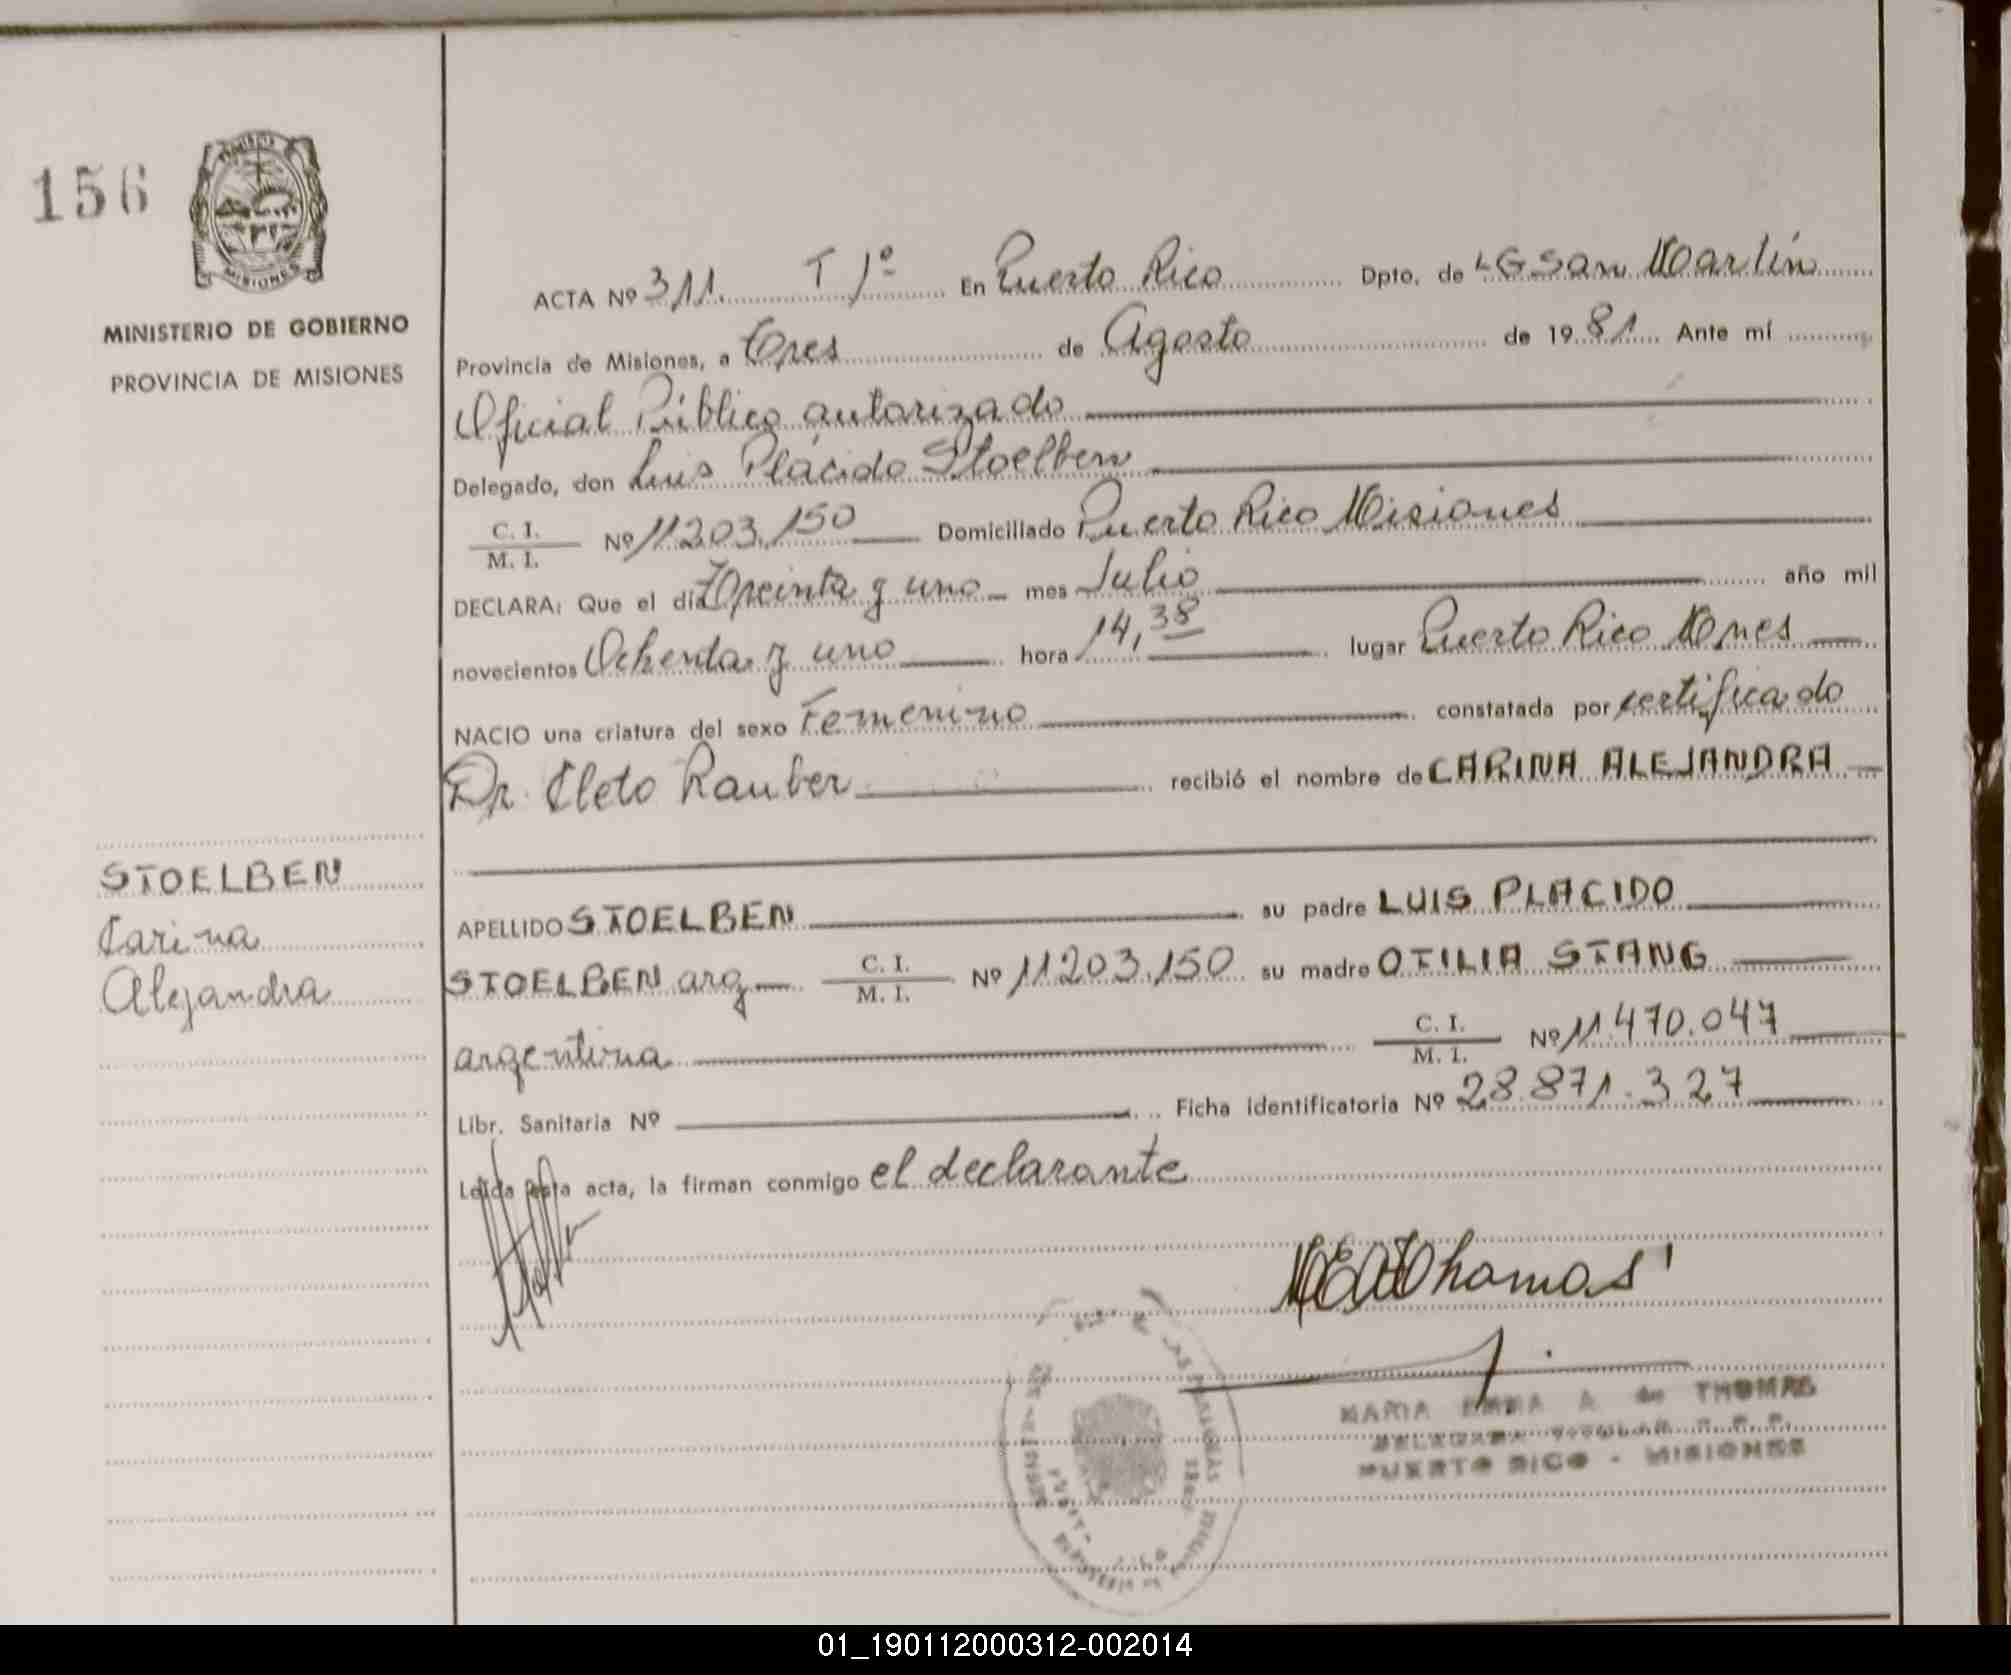 156
MISIONES
MINISTERIO DE GOBIERNO
PROVINCIA DE MISIONES
ACTA Nº 311 T 1º En Puerto Rico Dpto. de LG San Martín
Provincia de Misiones, a Tres de Agosto de 1981 Ante mí
Oficial Público autorizado
Delegado, don Luis Plácido Stoelben
C. I.
M. I. Nº 11.203.150 Domiciliado Puerto Rico Misiones
DECLARA: Que el día Treinta y uno mes Julio año mil
novecientos Ochenta y uno hora 14,38 lugar Puerto Rico Mnes
NACIO una criatura del sexo Femenino constatada por certificado
Dr. Cleto Rauber recibió el nombre de CARINA ALEJANDRA
STOELBEN
Carina
Alejandra
APELLIDO STOELBEN su padre LUIS PLACIDO
STOELBEN arg C. I.
M. I. Nº 11203.150 su madre OTILIA STANG
argentina C. I.
M. I. Nº 11.470.047
Libr. Sanitaria Nº Ficha identificatoria Nº 28.871.327
Leída esta acta, la firman conmigo el declarante
Thomas
MARIA EMMA A de THOMAS
DELEGADA TITULAR
PUERTO RICO - MISIONES
01_190112000312-002014